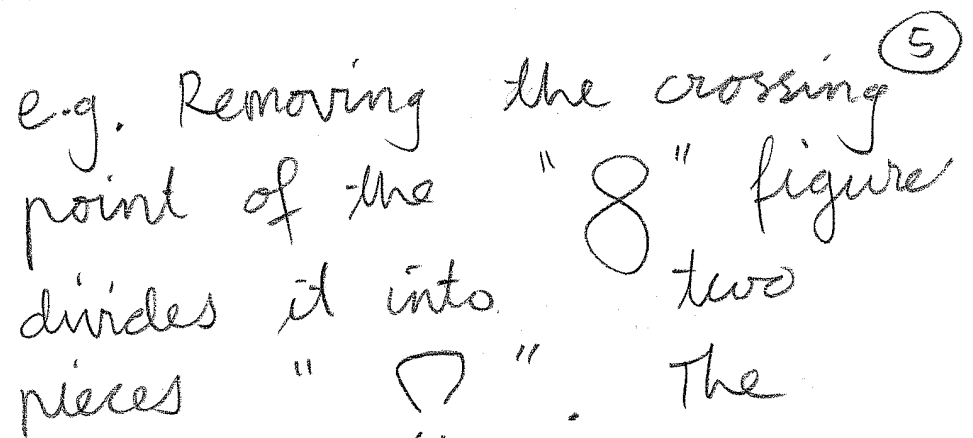 5
e.g. Removing the crossing
point of the "8" figure
divides it into two
pieces " ". The